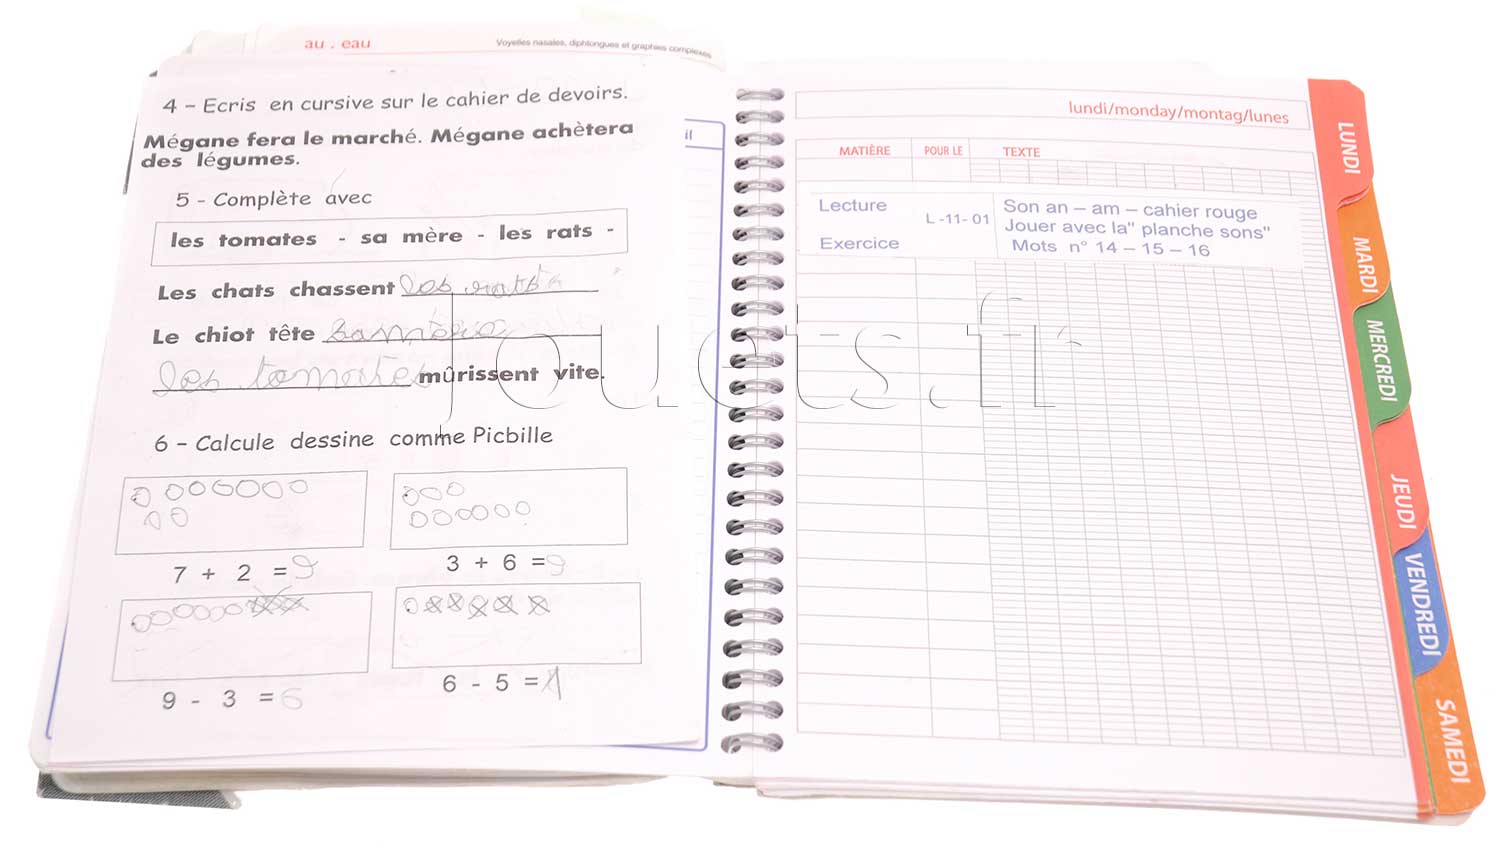 au . eau
Voyelles nasales, diphtongues et graphies complexes
4 – Ecris en cursive sur le cahier de devoirs.
Mégane fera le marché. Mégane achètera
des légumes.
5 - Complète avec
les tomates - sa mère - les rats -
Les chats chassent les rats
Le chiot tête sa mère
les tomates mûrissent vite.
6 – Calcule dessine comme Picbille
7 + 2 = 9
3 + 6 = 9
9 - 3 = 6
6 - 5 = 1
il
lundi/monday/montag/lunes
MATIÈRE POUR LE TEXTE
Lecture L -11- 01 Son an – am – cahier rouge
Jouer avec la" planche sons"
Exercice Mots n° 14 – 15 – 16
LUNDI
MARDI
MERCREDI
JEUDI
VENDREDI
SAMEDI
Jouets.fr